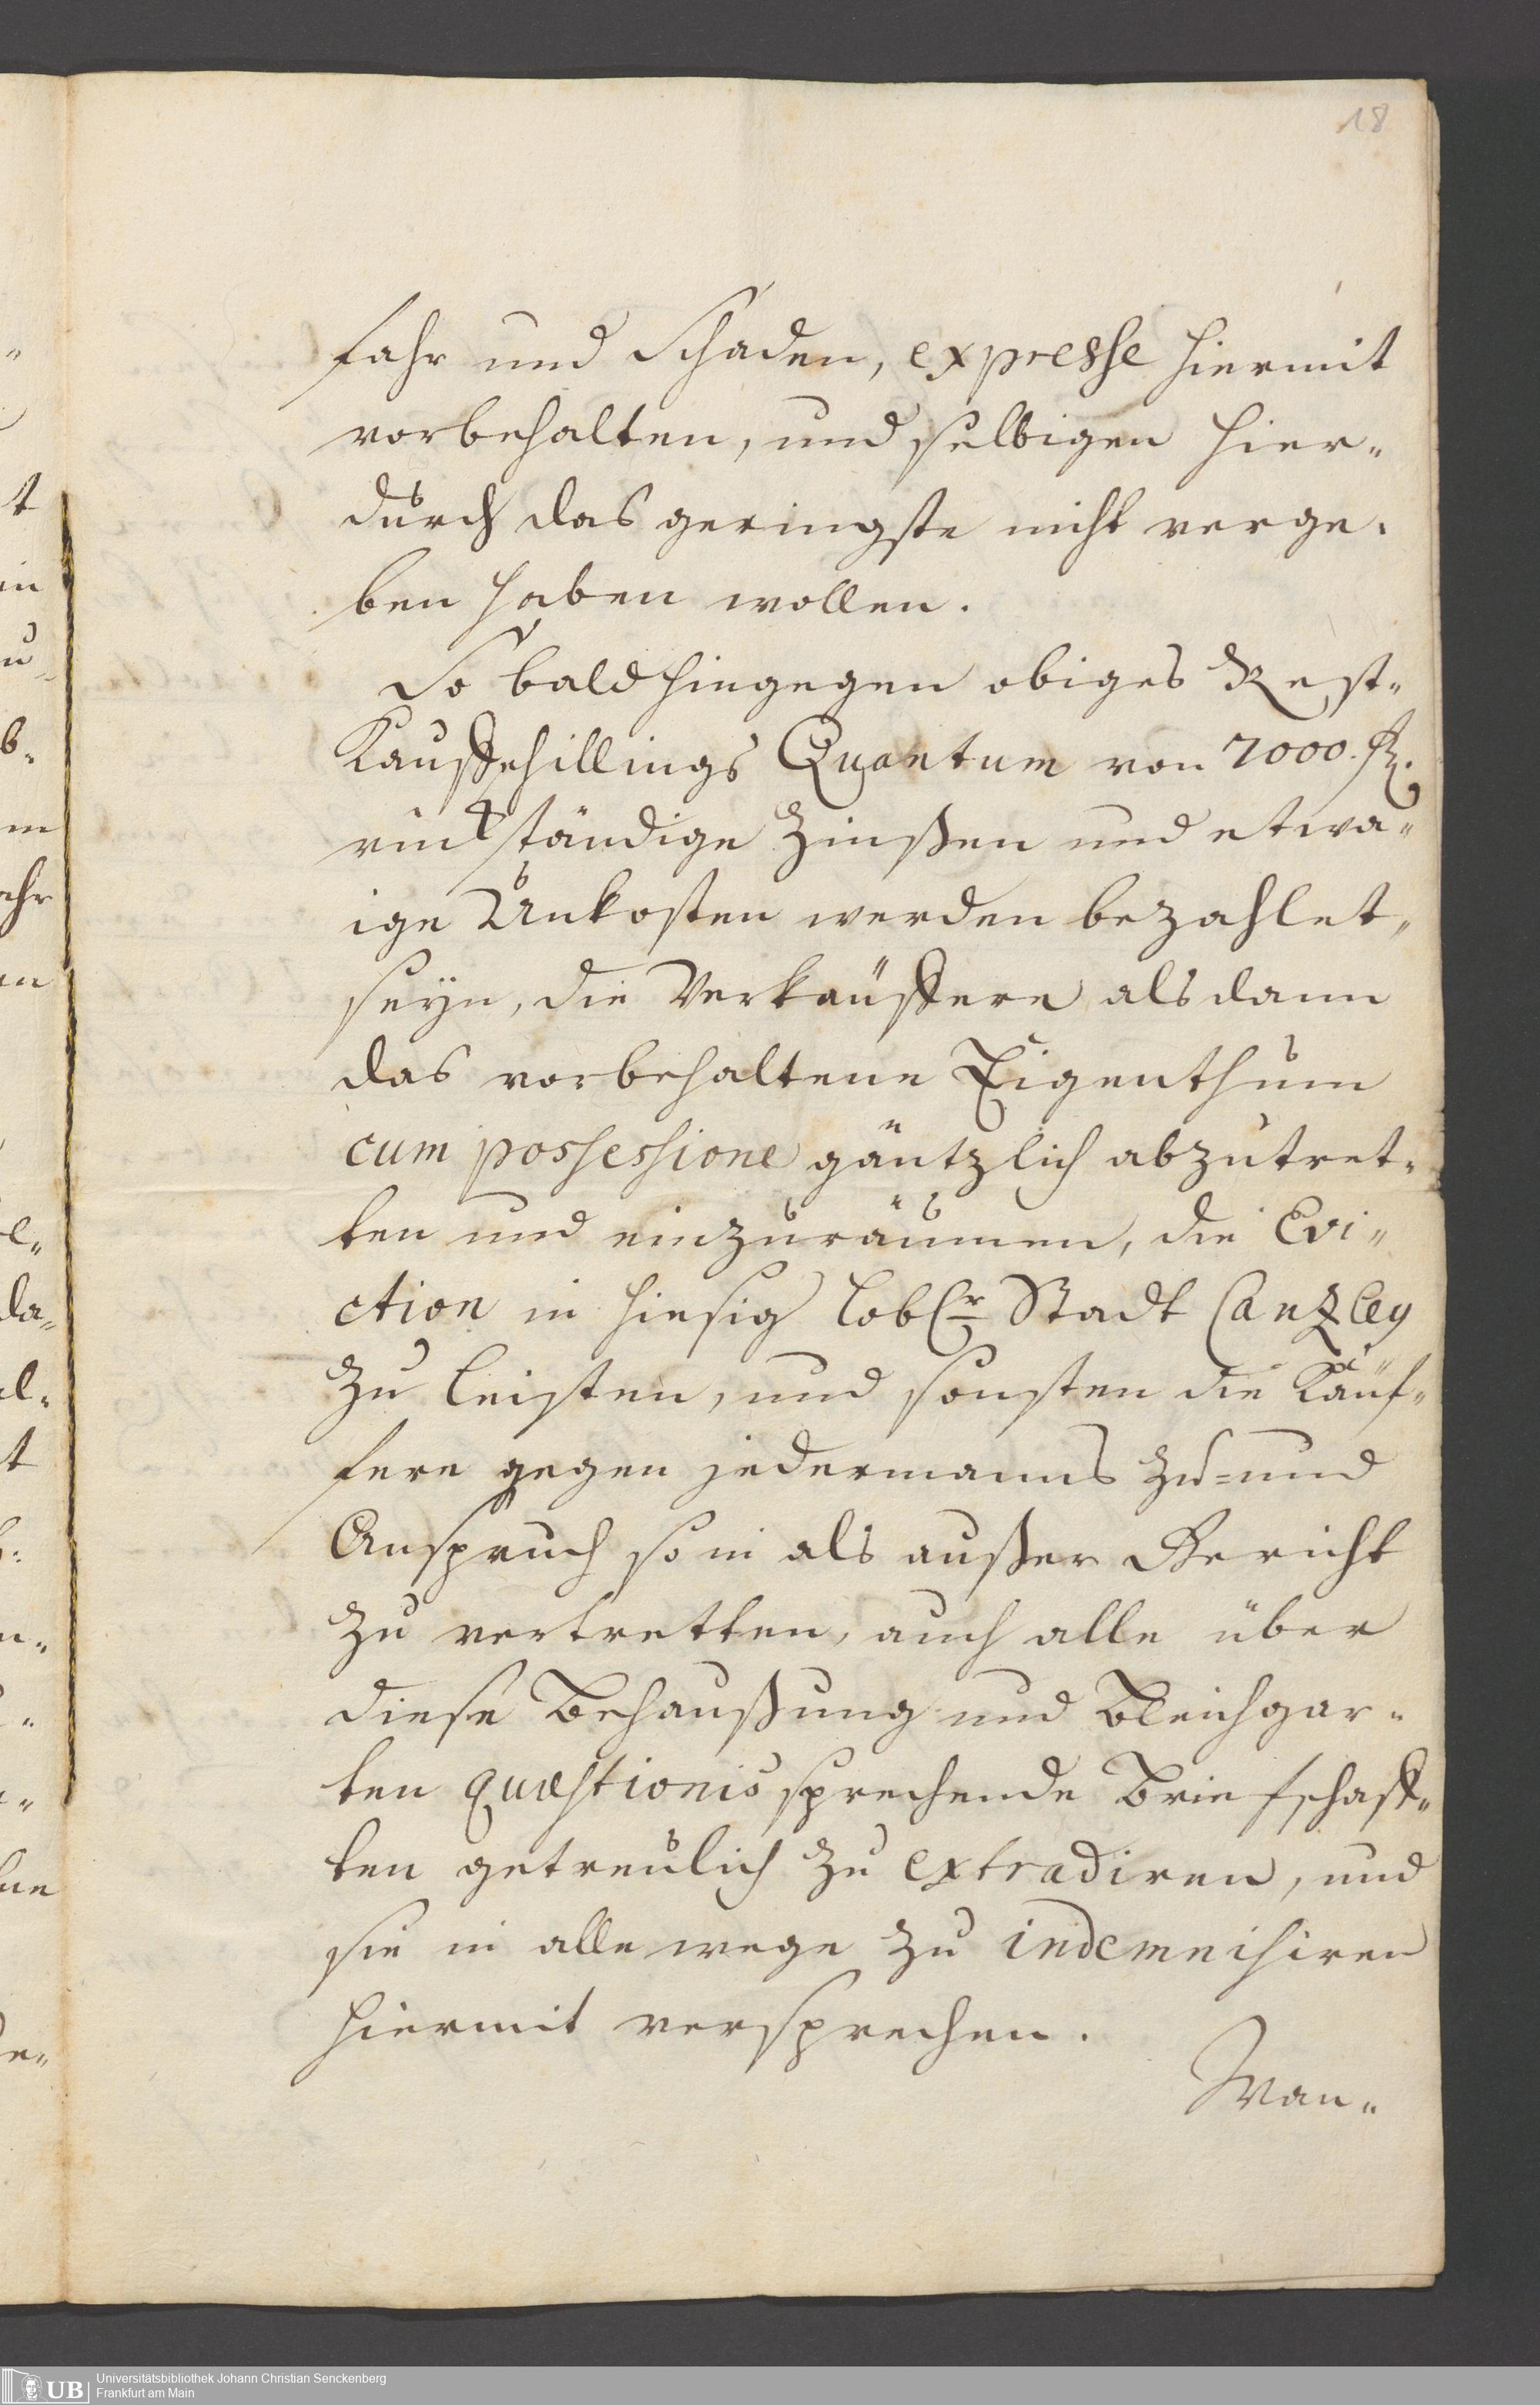 18
fahr und Schaden, expresse hiermit
vorbehalten, und selbigen hier„
durch das geringste nicht verge„
ben haben wollen.
So bald hingegen obiges Rest„
Kauffschillings Quantum von 7000. fl.
rückständige Zinßen und etwa„
ige Unkosten werden bezahlet„
seyn, die Verkäuffere alsdann
das vorbehaltene Eigenthum
cum possessione gäntzlich abzutret„
ten und einzuräumen, die Evi„
ction in hiesig löblr Stadt Cantzley
zu leisten, und sonsten die Käuf„
fere gegen jedermanns Zu= und
Anspruch so in als außer Gericht
zu vertretten, auch alle über
diese Behaußung und Bleichgar„
ten quæstionis sprechende Brieffschaff„
ten getreulich zu extradiren, und
sie in alle wege zu indemnisiren
hiermit versprechen.
Wan„
UB
Universitätsbibliothek Johann Christian Senckenberg
Frankfurt am Main